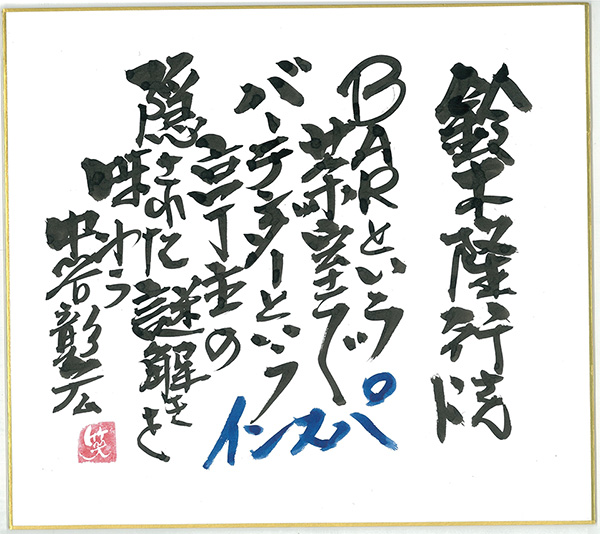 鈴木隆行様
BARという
茶室で
バーテンダーという
亭主の
隠された謎解きを
味わう
インスパ
中谷彰宏
笑